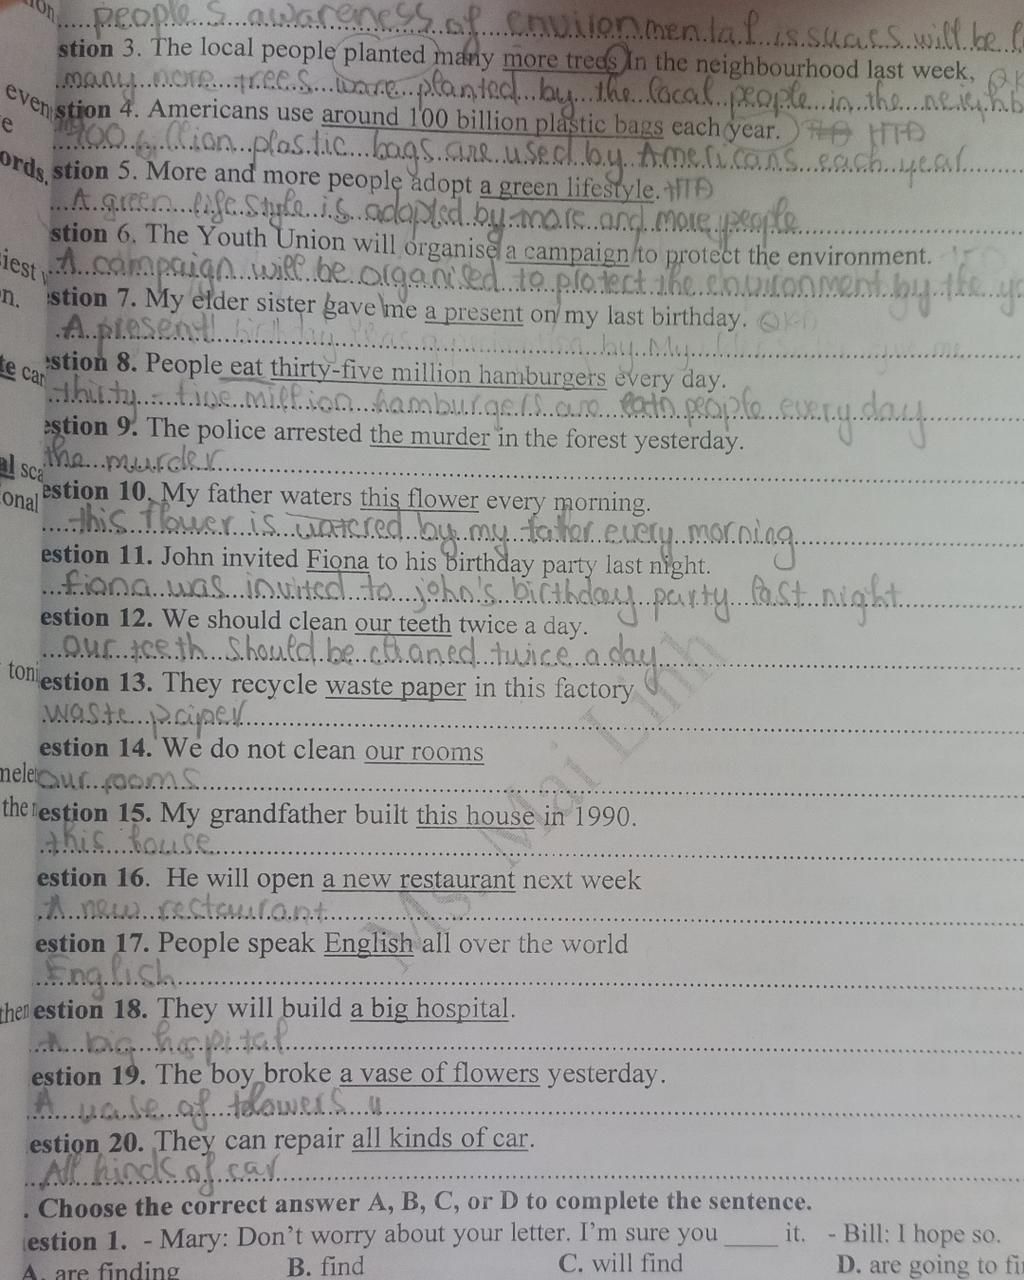 people's awareness of environmental issuaes will be
stion 3. The local people planted many more trees In the neighbourhood last week,
many more trees ware planted by the local people in the neighb
even stion 4. Americans use around 100 billion plastic bags each year. HTĐ
e
100 billion plastic bags are used by Americans each year
ords, stion 5. More and more people adopt a green lifestyle. HTĐ
A green lifestyle is adapted by more and more people
stion 6. The Youth Union will organise a campaign to protect the environment.
iest A campaign will be organised to protect the environment by the yo
n. stion 7. My elder sister gave me a present on my last birthday.
A present by My
te car stion 8. People eat thirty-five million hamburgers every day.
thirty-five million hamburgers are eatn people every day
estion 9. The police arrested the murder in the forest yesterday.
al sca the murder
onal estion 10. My father waters this flower every morning.
this flower is watered by my father every morning
estion 11. John invited Fiona to his birthday party last night.
fiona was invited to john's birthday party last night
estion 12. We should clean our teeth twice a day.
our teeth should be cleaned twice a day
toni estion 13. They recycle waste paper in this factory
waste paper
estion 14. We do not clean our rooms
our rooms
the estion 15. My grandfather built this house in 1990.
this house
estion 16. He will open a new restaurant next week
A new restaurant
estion 17. People speak English all over the world
English
then estion 18. They will build a big hospital.
A big hospital
estion 19. The boy broke a vase of flowers yesterday.
A vase of flowers
estion 20. They can repair all kinds of car.
All kinds of car
. Choose the correct answer A, B, C, or D to complete the sentence.
estion 1. - Mary: Don't worry about your letter. I'm sure you ____ it. - Bill: I hope so.
A. are finding B. find C. will find D. are going to fi
Ms. Mai Linh